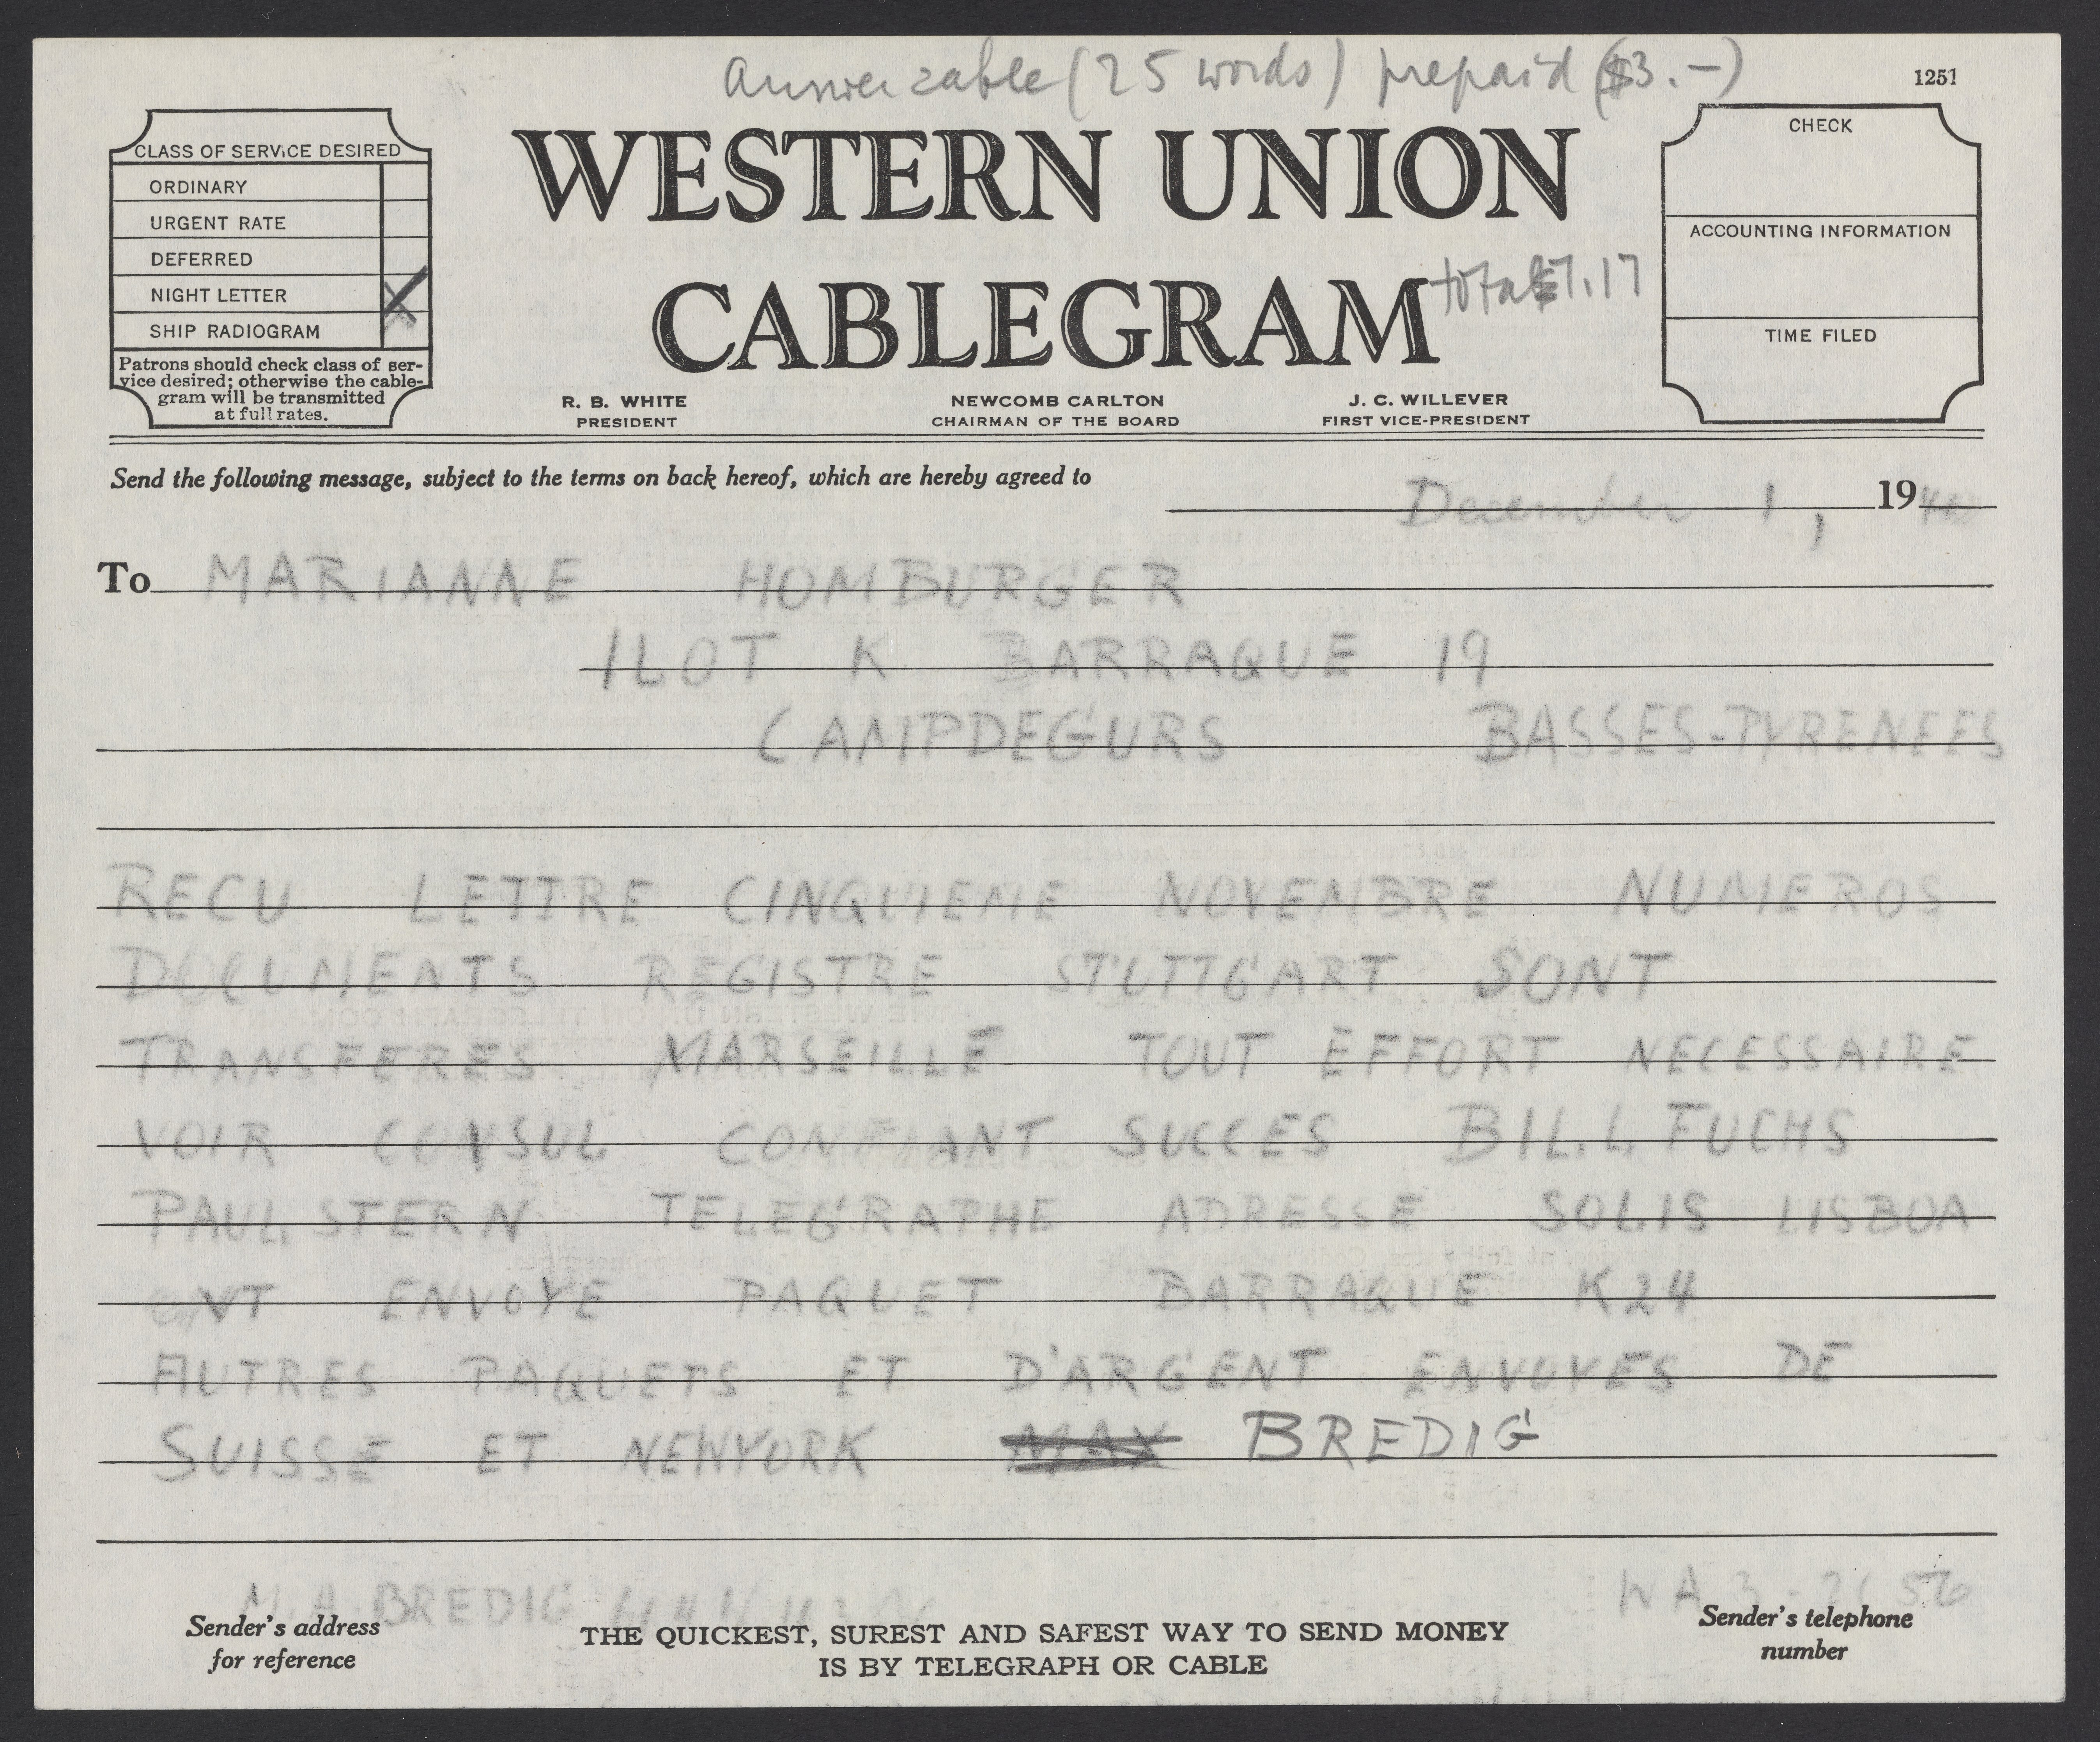 Answer cable (25 words) prepaid ($3.-)
1251
CLASS OF SERVICE DESIRED
ORDINARY
URGENT RATE
DEFERRED
NIGHT LETTER X
SHIP RADIOGRAM
Patrons should check class of ser-
vice desired; otherwise the cable-
gram will be transmitted
at full rates.
WESTERN UNION
CABLEGRAM
total $7.17
R. B. WHITE
PRESIDENT
NEWCOMB CARLTON
CHAIRMAN OF THE BOARD
J. C. WILLEVER
FIRST VICE-PRESIDENT
CHECK
ACCOUNTING INFORMATION
TIME FILED
Send the following message, subject to the terms on back hereof, which are hereby agreed to
December 1, 1940
To MARIANNE HOMBURGER
ILOT K BARRAQUE 19
CAMPDEGURS BASSES-PYRENEES
RECU LETTRE CINQUIEME NOVEMBRE NUMEROS
DOCUMENTS REGISTRE STUTTGART SONT
TRANSFERES MARSEILLE TOUT EFFORT NECESSAIRE
VOIR CONSUL CONFIANT SUCCES BILL FUCHS
PAUL STERN TELEGRAPHE ADRESSE SOLIS LISBOA
ONT ENVOYE PAQUET BARRAQUE K24
AUTRES PAQUETS ET D'ARGENT ENVOYES DE
SUISSE ET NEWYORK MAX BREDIG
M. A. BREDIG
WA 3-
Sender's address
for reference
THE QUICKEST, SUREST AND SAFEST WAY TO SEND MONEY
IS BY TELEGRAPH OR CABLE
Sender's telephone
number